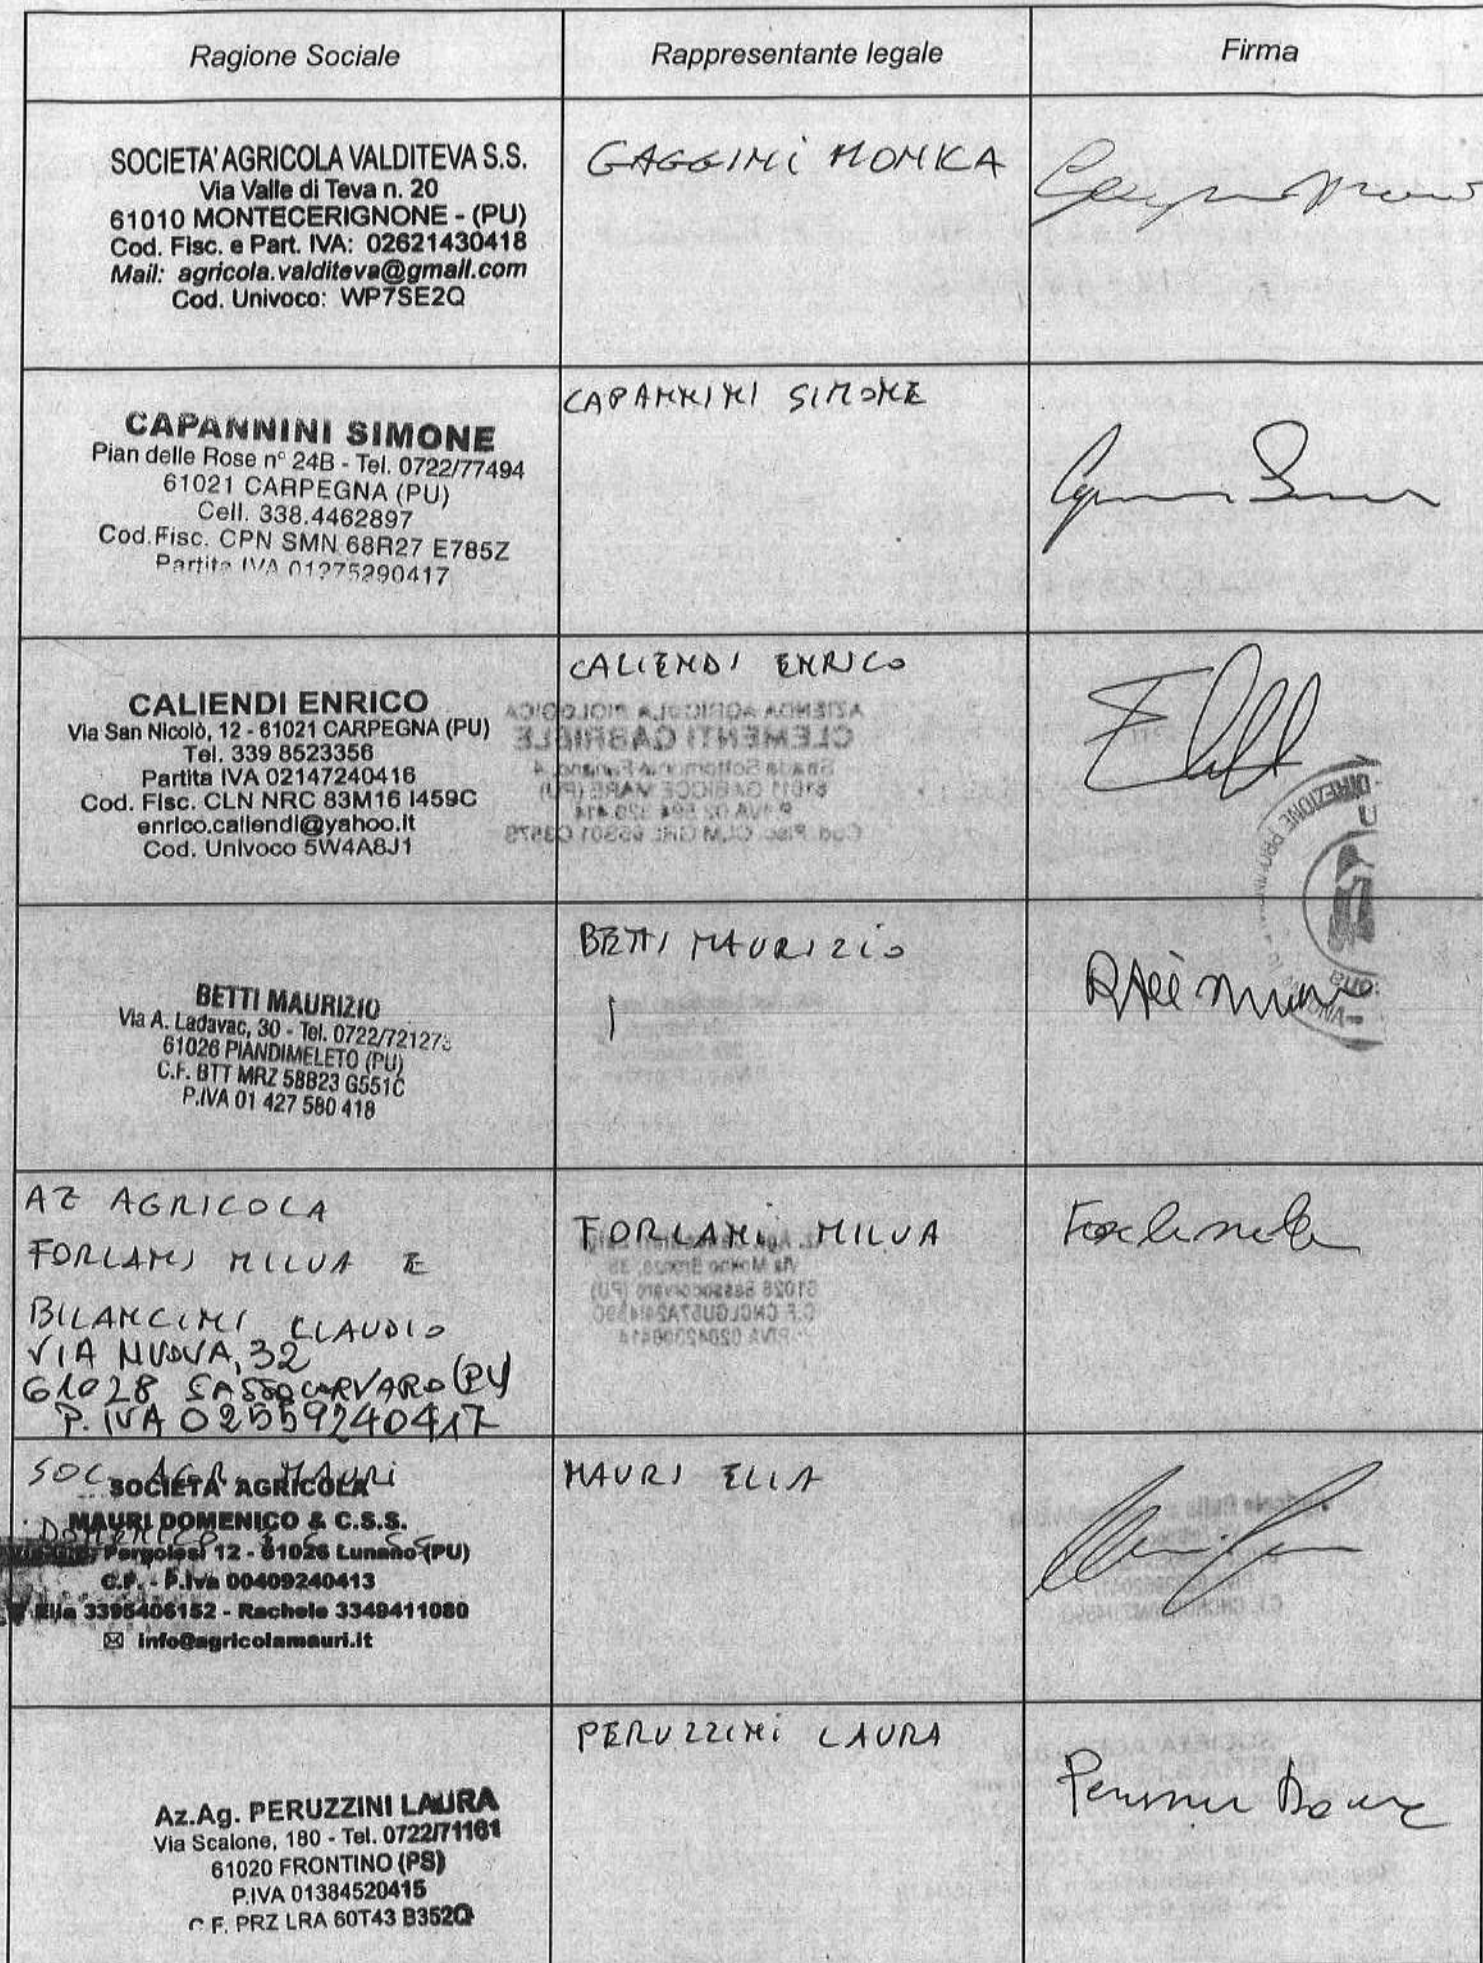 Ragione Sociale
Rappresentante legale
Firma
SOCIETA' AGRICOLA VALDITEVA S.S.
Via Valle di Teva n. 20
61010 MONTECERIGNONE - (PU)
Cod. Fisc. e Part. IVA: 02621430418
Mail: agricola.valditeva@gmail.com
Cod. Univoco: WP7SE2Q
GAGGINI MONICA
CAPANNINI SIMONE
Pian delle Rose n° 24B - Tel. 0722/77494
61021 CARPEGNA (PU)
Cell. 338.4462897
Cod.Fisc. CPN SMN 68R27 E785Z
Partita IVA 01275290417
CAPANNINI SIMONE
CALIENDI ENRICO
Via San Nicolò, 12 - 61021 CARPEGNA (PU)
Tel. 339 8523356
Partita IVA 02147240416
Cod. Fisc. CLN NRC 83M16 I459C
enrico.caliendi@yahoo.it
Cod. Univoco 5W4A8J1
CALIENDI ENRICO
AZIENDA AGRICOLA BIOLOGICA
CLEMENTI GABRIELE
61011 GABICCE MARE (PU)
DIREZIONE
BETTI MAURIZIO
Via A. Ladavac, 30 - Tel. 0722/721273
61026 PIANDIMELETO (PU)
C.F. BTT MRZ 58B23 G551C
P.IVA 01 427 580 418
BETTI MAURIZIO
AZ AGRICOLA
FORLANI MILVA E
BILANCINI CLAUDIO
VIA NUOVA, 32
61028 SASSOCORVARO (PU)
P. IVA 02559240417
FORLANI MILVA
Via Molino Bronzo, 38
61028 Sassocorvaro (PU)
SOC. AGR. MAURI
DOMENICO
SOCIETA' AGRICOLA
MAURI DOMENICO & C.S.S.
Pergolesi 12 - 61026 Lunano (PU)
C.F. - P.Iva 00409240413
Elia 3395406152 - Rachele 3349411080
info@agricolamauri.it
MAURI ELIA
Az.Ag. PERUZZINI LAURA
Via Scalone, 180 - Tel. 0722/71161
61020 FRONTINO (PS)
P.IVA 01384520415
C.F. PRZ LRA 60T43 B352Q
PERUZZINI LAURA